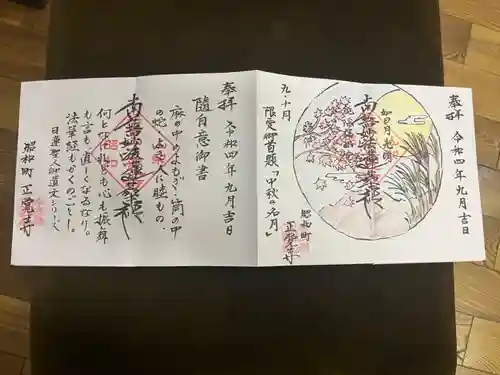 奉拝 令和四年九月吉日
如日月光明
南無妙法蓮華経
昭和町 正覚寺
限定御首題『中秋の名月』
九・十月
奉拝 令和四年九月吉日
隨自意御書
麻の中のよもぎ・筒の中
の蛇・よき人に睦もの、
南無妙法蓮華経
何となけれども心も振舞
も言も直しくなるなり。
法華経もかくのごとし。
日蓮聖人御遺文シリーズ
昭和町 正覚寺